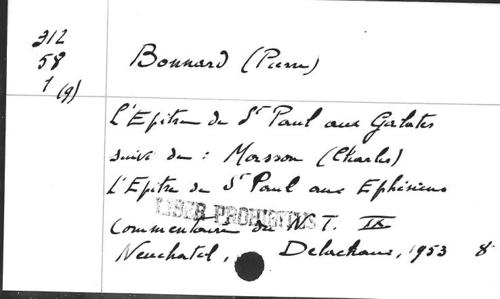 312
58
1 (9)
Bonnard (Pierre)
L'Epitre de St Paul aux Galates
suivi de : Masson (Charles)
L'Epitre de St Paul aux Ephésiens
LIBER PROHIBITUS
Commentaire du N. T. IX
Neuchatel, Delachaux, 1953 8°